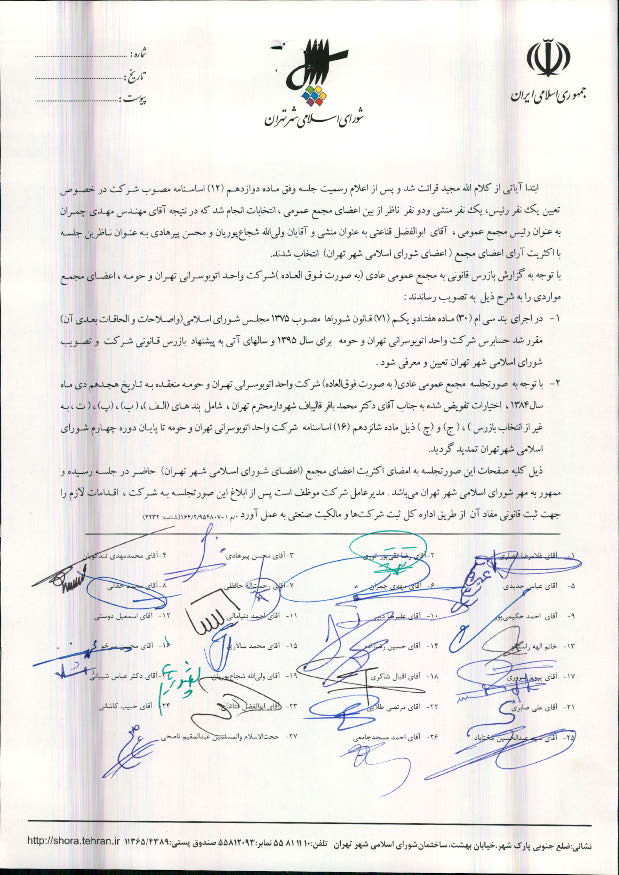 جمهوری اسلامی ایران
شورای اسلامی شهر تهران
شماره :
تاریخ :
پیوست :
ابتدا آیاتی از کلام الله مجید قرائت شد و پس از اعلام رسمیت جلسه وفق ماده دوازدهم (۱۲) اساسنامه مصوب شرکت در خصوص
تعیین یک نفر رئیس، یک نفر منشی ودو نفر ناظر از بین اعضای مجمع عمومی ، انتخابات انجام شد که در نتیجه آقای مهندس مهدی چمران
به عنوان رئیس مجمع عمومی ، آقای ابوالفضل قناعتی به عنوان منشی و آقایان ولی‌الله شجاع‌پوریان و محسن پیرهادی به عنوان ناظرین جلسه
با اکثریت آرای اعضای مجمع ( اعضای شورای اسلامی شهر تهران) انتخاب شدند.
با توجه به گزارش بازرس قانونی به مجمع عمومی عادی (به صورت فوق العاده )شرکت واحد اتوبوسرانی تهران و حومه ، اعضای مجمع
مواردی را به شرح ذیل به تصویب رساندند :
۱- در اجرای بند سی ام (۳۰) ماده هفتادو یکم (۷۱) قانون شوراها مصوب ۱۳۷۵ مجلس شورای اسلامی(واصلاحات و الحاقات بعدی آن)
مقرر شد حسابرس شرکت واحد اتوبوسرانی تهران و حومه برای سال ۱۳۹۵ و سالهای آتی به پیشنهاد بازرس قانونی شرکت و تصویب
شورای اسلامی شهر تهران تعیین و معرفی شود .
۲- با توجه به صورتجلسه مجمع عمومی عادی(به صورت فوق‌العاده) شرکت واحد اتوبوسرانی تهران و حومه منعقده به تاریخ هجدهم دی ماه
سال ۱۳۸۴، اختیارات تفویض شده به جناب آقای دکتر محمد باقر قالیباف شهردارمحترم تهران ، شامل بندهای (الف )، (ب)، (پ)، (ت، به
غیر از انتخاب بازرس ) ، (ج) و (چ ) ذیل ماده شانزدهم (۱۶) اساسنامه شرکت واحد اتوبوسرانی تهران و حومه تا پایان دوره چهارم شورای
اسلامی شهر تهران تمدید گردید.
ذیل کلیه صفحات این صورتجلسه به امضای اکثریت اعضای مجمع (اعضای شورای اسلامی شهر تهران) حاضر در جلسه رسیده و
ممهور به مهر شورای اسلامی شهر تهران می‌باشد . مدیرعامل شرکت موظف است پس از ابلاغ این صورتجلسه به شرکت ، اقدامات لازم را
جهت ثبت قانونی مفاد آن از طریق اداره کل ثبت شرکت‌ها و مالکیت صنعتی به عمل آورد
۱- آقای غلامرضا انصاری ۲- آقای رضا تقی‌پور انوری ۳- آقای محسن پیرهادی ۴- آقای محمدمهدی تندگویان
۵- آقای عباس جدیدی ۶- آقای مهدی چمران ۷- آقای رحمت‌اله حافظی ۸- آقای
۹- آقای احمد حکیمی‌پور ۱۰- آقای علیرضا دبیر ۱۱- آقای احمد دنیامالی ۱۲- آقای اسمعیل دوستی
۱۳- خانم الهه ۱۴- آقای حسین رضازاده ۱۵- آقای محمد سالاری ۱۶- آقای محسن سرخو
۱۷- آقای پرویز سروری ۱۸- آقای اقبال شاکری ۱۹- آقای ولی‌الله شجاع‌پوریان آقای دکتر عباس شیبانی
۲۱- آقای علی صابری ۲۲- آقای مرتضی طلایی ۲۳- آقای ابوالفضل قناعتی ۲۴- آقای حبیب کاشانی
۲۵- آقای سید عبدالحسین مختاباد ۲۶- آقای احمد مسجدجامعی ۲۷- حجت‌الاسلام والمسلمین عبدالمقیم ناصحی
نشانی:ضلع جنوبی پارک شهر،خیابان بهشت، ساختمان شورای اسلامی شهر تهران تلفن: ۱۰ ۱۱ ۸۱ ۵۵ نمابر: ۵۵۸۱۲۰۹۳ صندوق پستی: ۱۱۳۶۵/۴۳۸۹ http://shora.tehran.ir